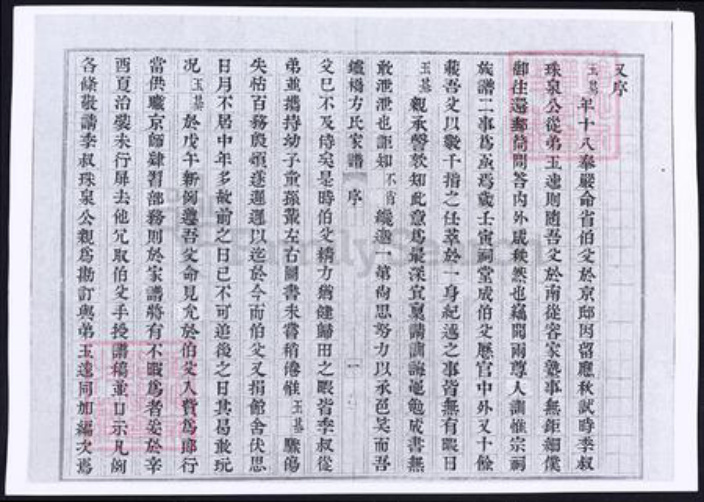 又序
玉墓年十八奉嚴命省伯父於京邸因留應秋試時季叔
珠泉公從弟玉達則隨吾父於南從容家塾事無鉅細僕
御往還郵筒問答內外成秩然也竊聞兩尊人訓惟宗祠
族譜二事爲亟焉歲壬寅祠堂成伯父歷官中外又十餘
載吾父以數千指之任萃於一身紀述之事皆無有暇日
玉墓親承謦欬知此意爲最深宜夏請訓誨黽勉成書無
敢泄泄也詎知不肖纔逾
弟尙思努力以承色笑而吾
鐵橋方氏家譜 序 一
父已不及侍矣是時伯父精力猶健歸田之暇皆季叔從
弟並攜持幼子童孫嬉左右圖書未嘗稍倦惟玉墓
失怙百務叢煩遂遲遲以迄於今而伯父又捐館舍伏思
日月不居中年多故前之日已不可追後之日其曷敢玩
况玉墓於戊午新例遵吾父命見允於伯父入貲爲郎行
當供職京師肄習部務則於家譜將有不暇爲者爰於辛
酉夏治裝未行屏去他冗取伯父手授譜稿並口示凡例
各條敬請季叔珠泉公親爲勘訂與弟玉達同加編次焉
FamilySearch